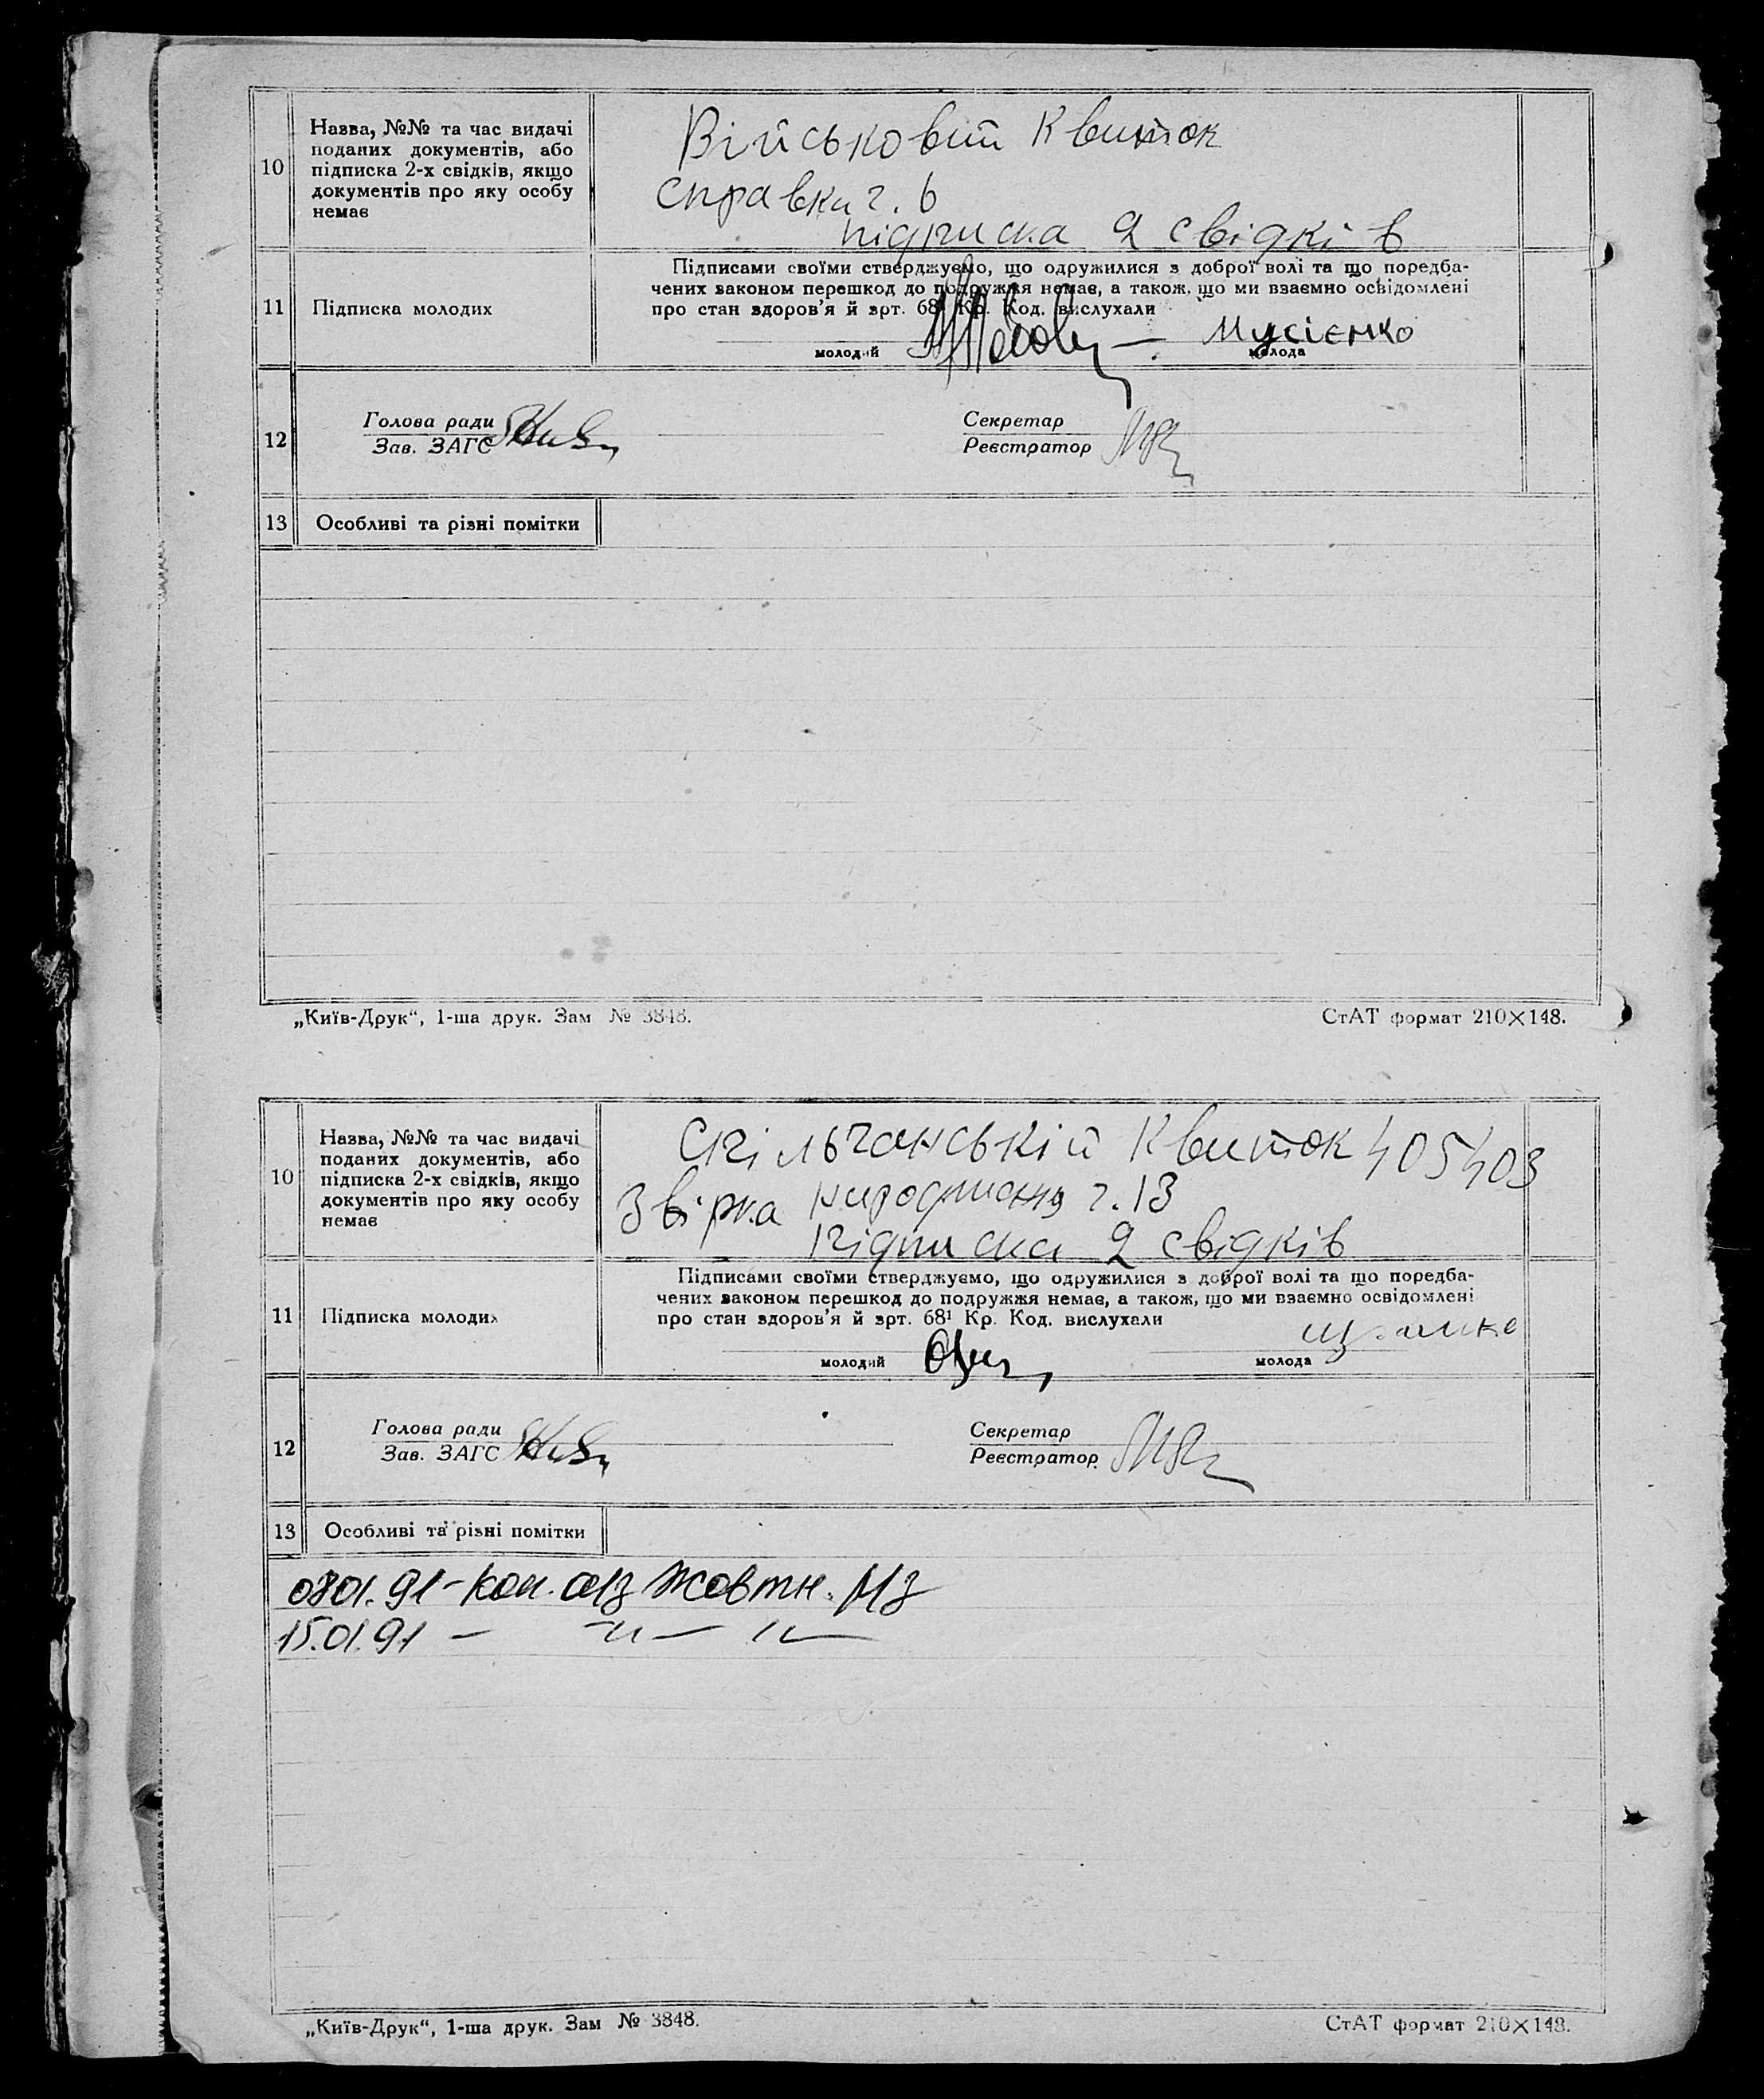 10
Назва, №№ та час видачі
поданих документів, або
підписка 2-х свідків, якщо
документів про яку особу
немає
Військовий квиток
справки г. 6
підписка 2 свідків
11
Підписка молодих
Підписами своїми стверджуємо, що одружилися з доброї волі та що поредба-
чених законом перешкод до подружжя немає, а також, що ми взаємно освідомлені
про стан здоров'я й арт. 68¹ Кр. Код. вислухали
молодий
Мусієнко
молода
12
Голова ради
Зав. ЗАГС
Секретар
Реєстратор
13
Особливі та різні помітки
„Київ-Друк“, 1-ша друк. Зам № 3848.
СтАТ формат 210×148.
10
Назва, №№ та час видачі
поданих документів, або
підписка 2-х свідків, якщо
документів про яку особу
немає
квиток 405403
г. 13
підписка 2 свідків
11
Підписка молодих
Підписами своїми стверджуємо, що одружилися з доброї волі та що поредба-
чених законом перешкод до подружжя немає, а також, що ми взаємно освідомлені
про стан здоров'я й арт. 68¹ Кр. Код. вислухали
молодий
молода
12
Голова ради
Зав. ЗАГС
Секретар
Реєстратор
13
Особливі та різні помітки
0801.91-коп. жовтн.
15.01.91 — -"- -"-
„Київ-Друк“, 1-ша друк. Зам № 3848.
СтАТ формат 210×148.